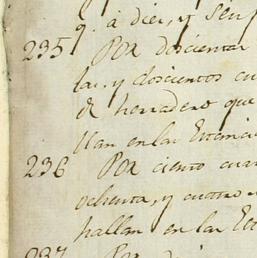 q. á diez, y seis p
235 Por doscientas
las, y doscientos cu
de herradero que
llan en las Estancia
236 Por ciento cuar
ochenta, y cuatro
hallan en las Est
237 Por